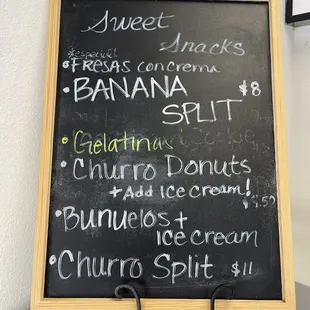 Sweet
Snacks
*especial*
• FRESAS con crema
• BANANA $8
SPLIT
• Gelatinas
• Churro Donuts
+ Add Ice cream!
• Bunuelos +
Ice cream
• Churro Split $11